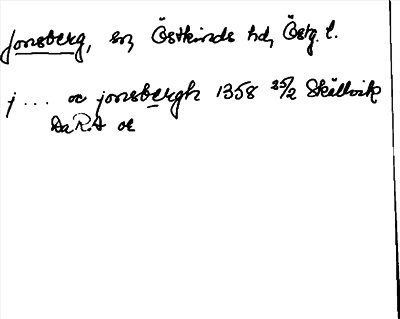 Jonsberg, sn, Östkinds hd, Östg. l.
j... oc jonsbergh 1358 25/2 Skällvik
Da RA or